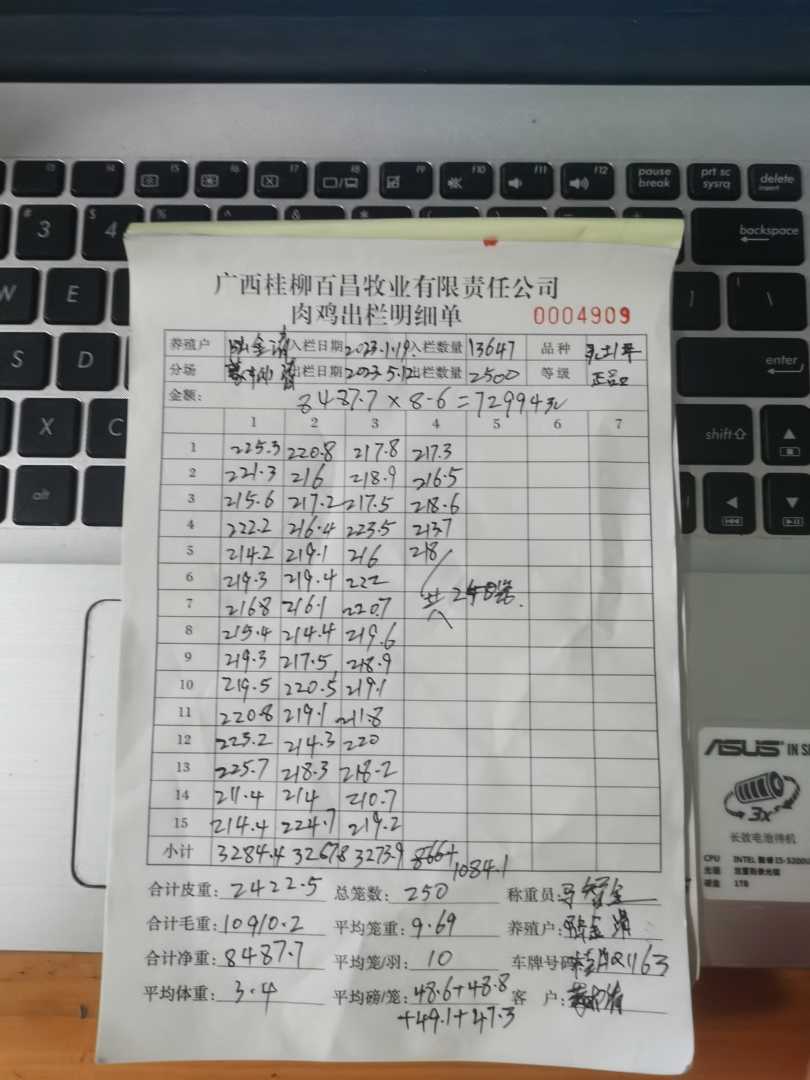 F3 F4 F5 F6 F7 F8 F9 F10 F11 F12 pause break prt sc sysrq delete insert
# 3 $ 4 % ^ & * ( ) backspace
W E enter
S D
X C shift
alt
广西桂柳百昌牧业有限责任公司
肉鸡出栏明细单 0004909
养殖户 入栏日期 2023.1.19 入栏数量 13647 品种
分场 出栏日期 2023.5.12 出栏数量 2500 等级 正品
金额: 8487.7 × 8.6 = 72994元
1 2 3 4 5 6 7
1 225.3 220.8 217.8 217.3
2 221.3 216 218.9 216.5
3 215.6 217.2 217.5 218.6
4 222.2 216.4 223.5 213.7
5 214.2 219.1 216 218
6 219.3 219.4 222
7 216.8 216.1 220.7 共
8 215.4 214.4 219.6
9 219.3 217.5 218.9
10 219.5 220.5 219.1
11 220.8 219.1 211.8
12 225.2 214.3 220
13 225.7 218.3 218.2
14 211.4 214 210.7
15 214.4 224.7 219.2
小计 3284.4 3267.8 3273.9 1084.1
合计皮重: 2422.5 总笼数: 250 称重员:
合计毛重: 10910.2 平均笼重: 9.69 养殖户:
合计净重: 8487.7 平均笼/羽: 10 车牌号码:
平均体重: 3.4 平均磅/笼: 48.6+48.8 客 户:
+49.1+47.3
ASUS IN S
3x
长效电池待机
CPU INTEL 酷睿 I5-5200U
光驱
硬盘 1TB